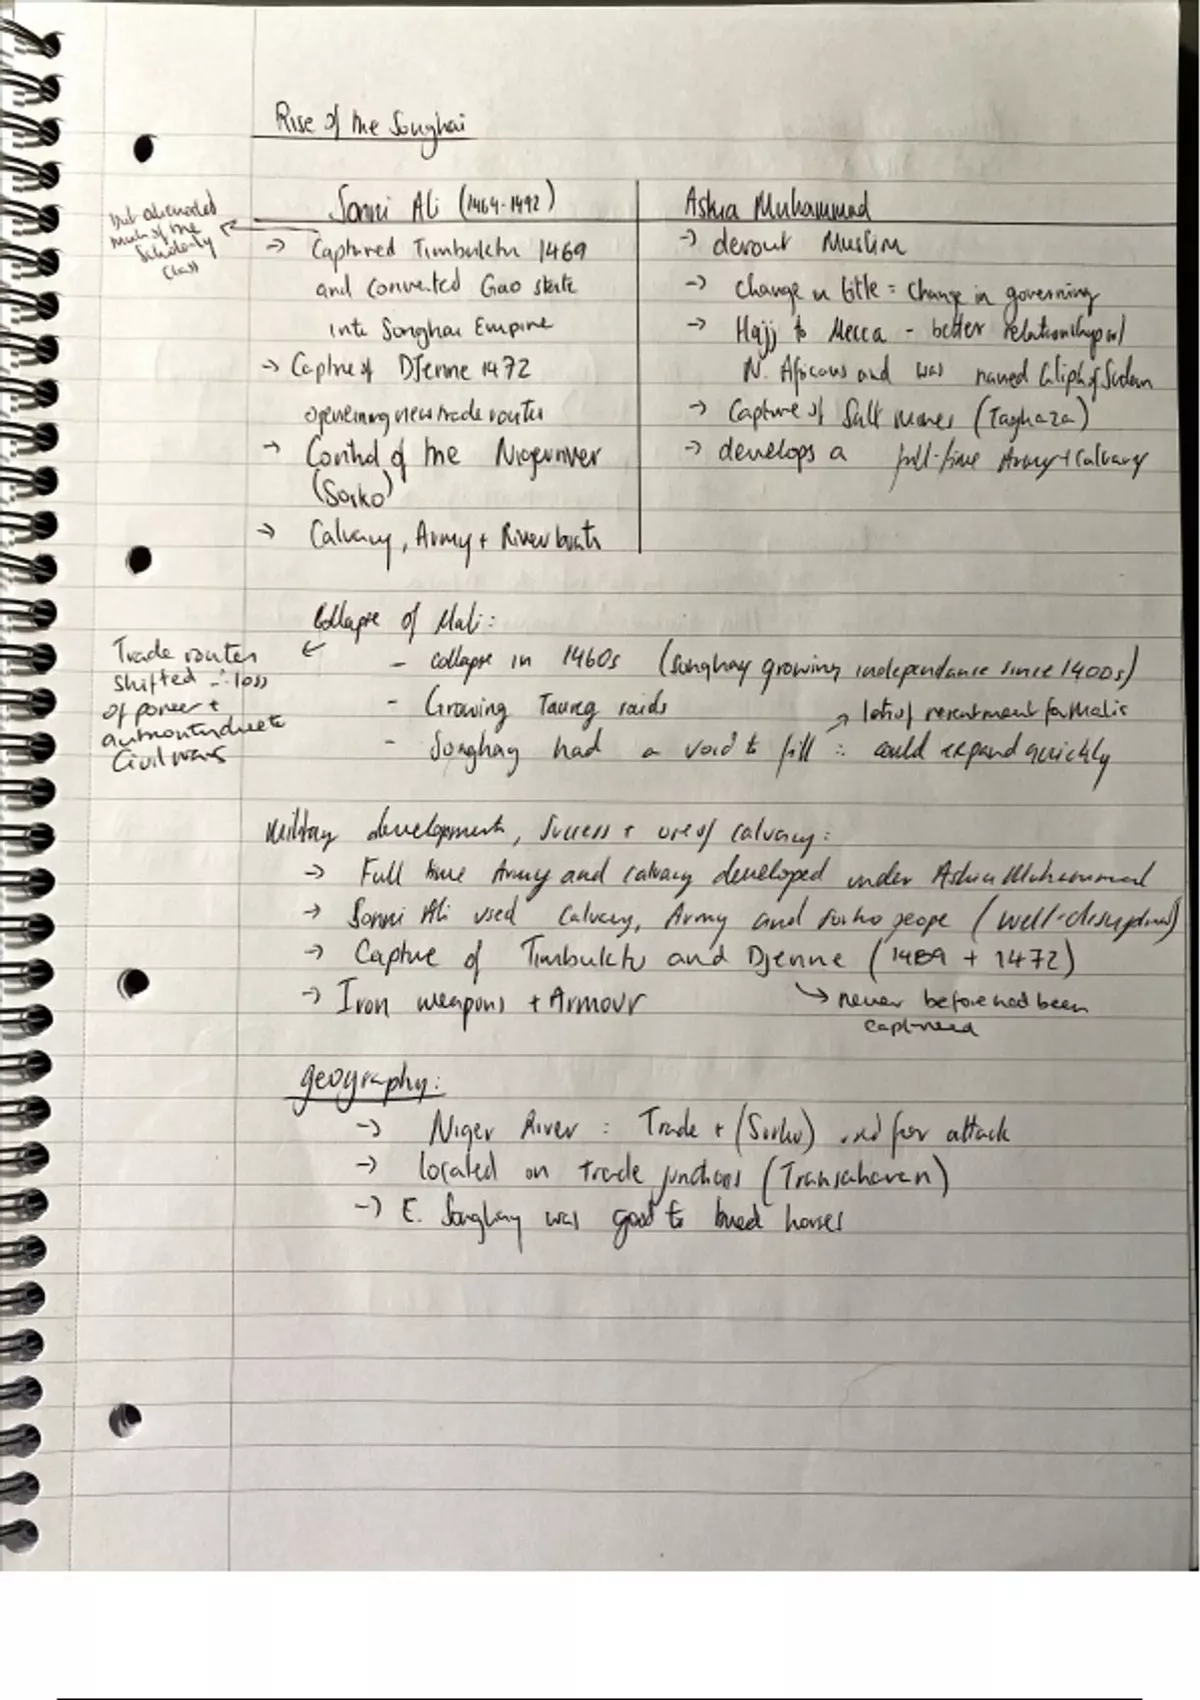 Rise of the Songhai
Sonni Ali (1464-1492)
but alienated
much of the
scholarly
class
→ Captured Timbuktu 1469
and converted Gao state
into Songhai Empire
→ Capture of Djenne 1472
openening new trade routes
→ Control of the Niger river
(Sorko)
→ Calvary, Army + River boats
Askia Muhammad
→ devout Muslim
→ Change in title = Change in governing
→ Hajj to Mecca - better relationships w/
N. Africans and was named Caliph of Sudan
→ Capture of Salt Mines (Taghaza)
→ develops a full-time Army + Calvary
Collapse of Mali:
Trade routes
shifted ∴ loss
of power +
due to
Civil wars
- collapse in 1460s (Songhay growing independance since 1400s)
- Growing Taureg raids
→ lots of resentment for Malis
- Songhay had a void to fill ∴ could expand quickly
Military development, Success + use of calvary:
→ Full time Army and calvary developed under Askia Muhammad
→ Sonni Ali used Calvary, Army and Sorko peope (well-
→ Capture of Timbuktu and Djenne (1469 + 1472)
→ never before had been
captured
→ Iron weapons + Armour
geography:
→ Niger River : Trade + (Sorko) used for attack
→ located on trade junctions (Transaharen)
→ E. Songhay was good to breed horses